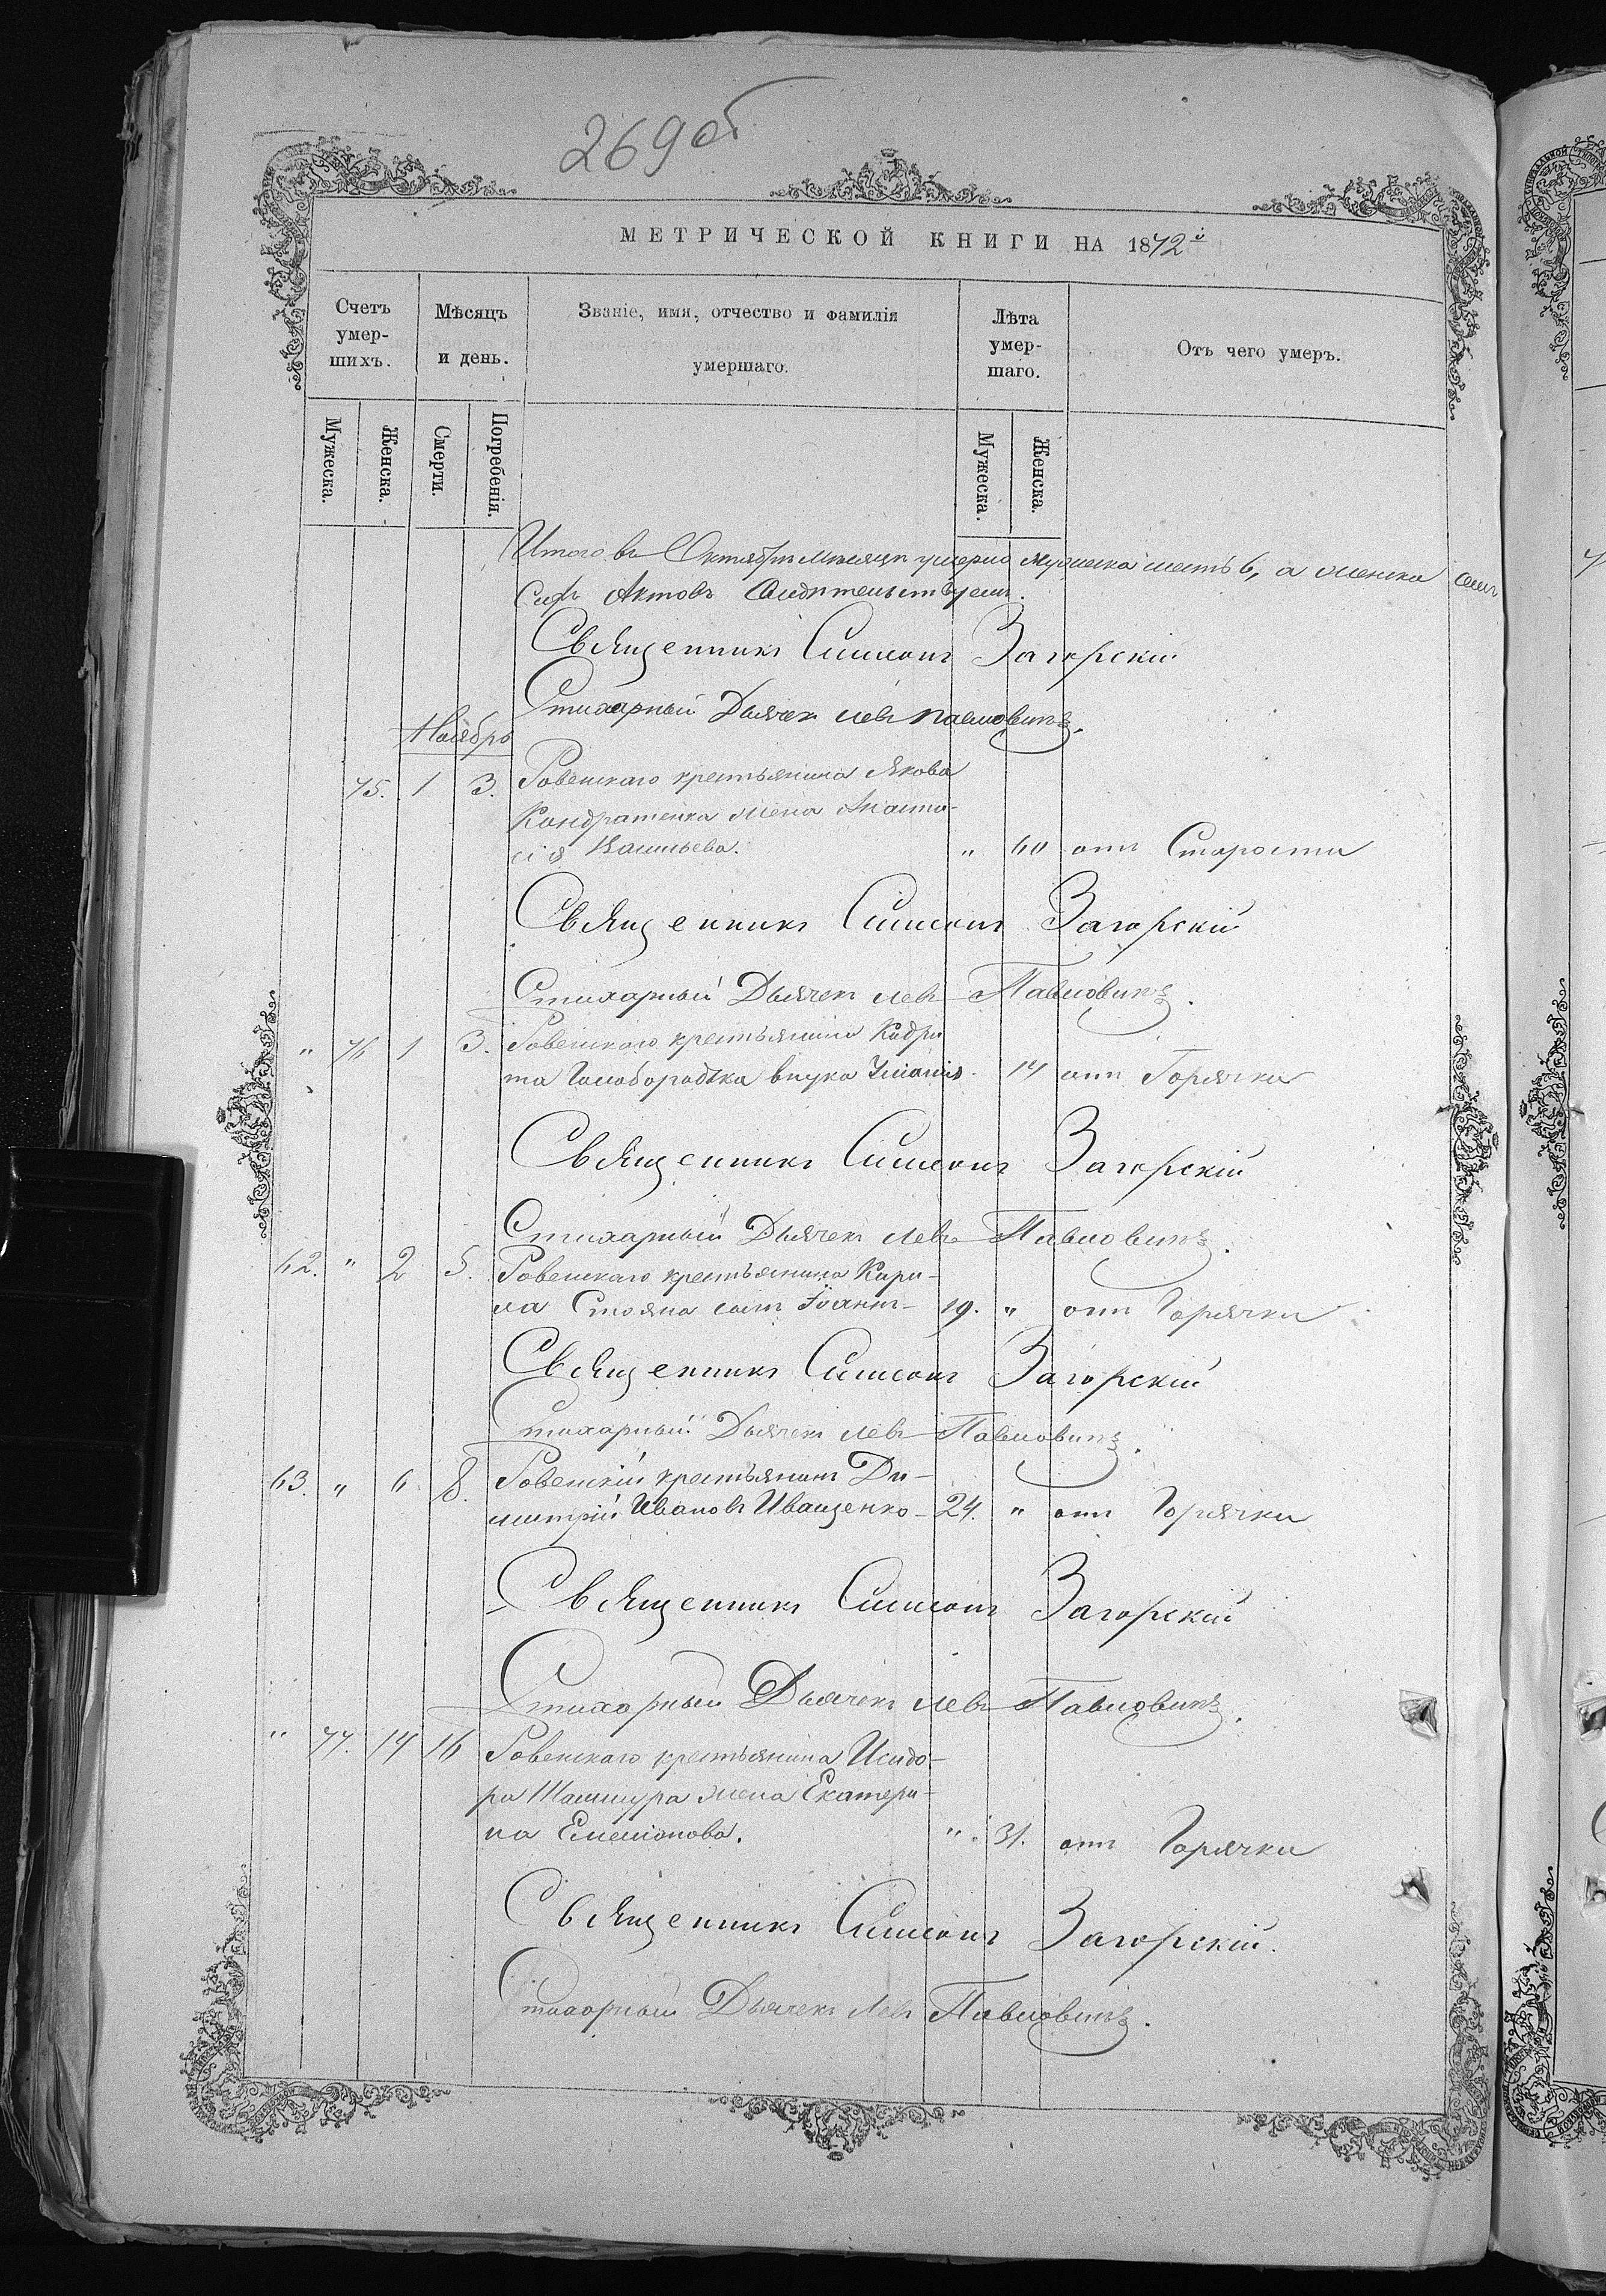 269об
МЕТРИЧЕСКОЙ КНИГИ НА 1872й
Счетъ умер-шихъ.
Мѣсяцъ и день.
Званіе, имя, отчество и фамилія умершаго.
Лѣта умер-шаго.
Отъ чего умеръ.
Мужеска. Женска. Смерти. Погребенія. Мужеска. Женска.
Итого въ Октябрѣ мѣсяцѣ умерло мужеска шесть 6, а женска семь
Сихъ Актовъ
Священникъ Симеонъ Загорскій
Стихарный Дьячекъ Левъ Павловичъ.
Ноябрь
75. 1 3. Ровенскаго крестьянина Якова
Кондратенка жена Анаста-
сія Васильева. " 60 отъ Старости
Священникъ Симеонъ Загорскій
Стихарный Дьячекъ Левъ Павловичъ.
" 76 1 3. Ровенскаго крестьянина Кодра
та Голобородька внука 14 отъ Горячки
Священникъ Симеонъ Загорскій
Стихарный Дьячекъ Левъ Павловичъ.
62. " 2 5. Ровенскаго крестьянина Кири-
ла Стояна сынъ Іоаннъ 19. " отъ Горячки
Священникъ Симеонъ Загорскій
Стихарный Дьячекъ Левъ Павловичъ.
63. " 6 8. Ровенскій крестьянинъ Ди-
митрій Ивановъ Иващенко 24. " отъ Горячки
Священникъ Симеонъ Загорскій
Стихарный Дьячекъ Левъ Павловичъ.
" 77. 14 16 Ровенскаго крестьянина Исидо-
ра жена Екатери-
на Емеліанова. " 31. отъ Горячки
Священникъ Симеонъ Загорскій.
Стихарный Дьячекъ Левъ Павловичъ.